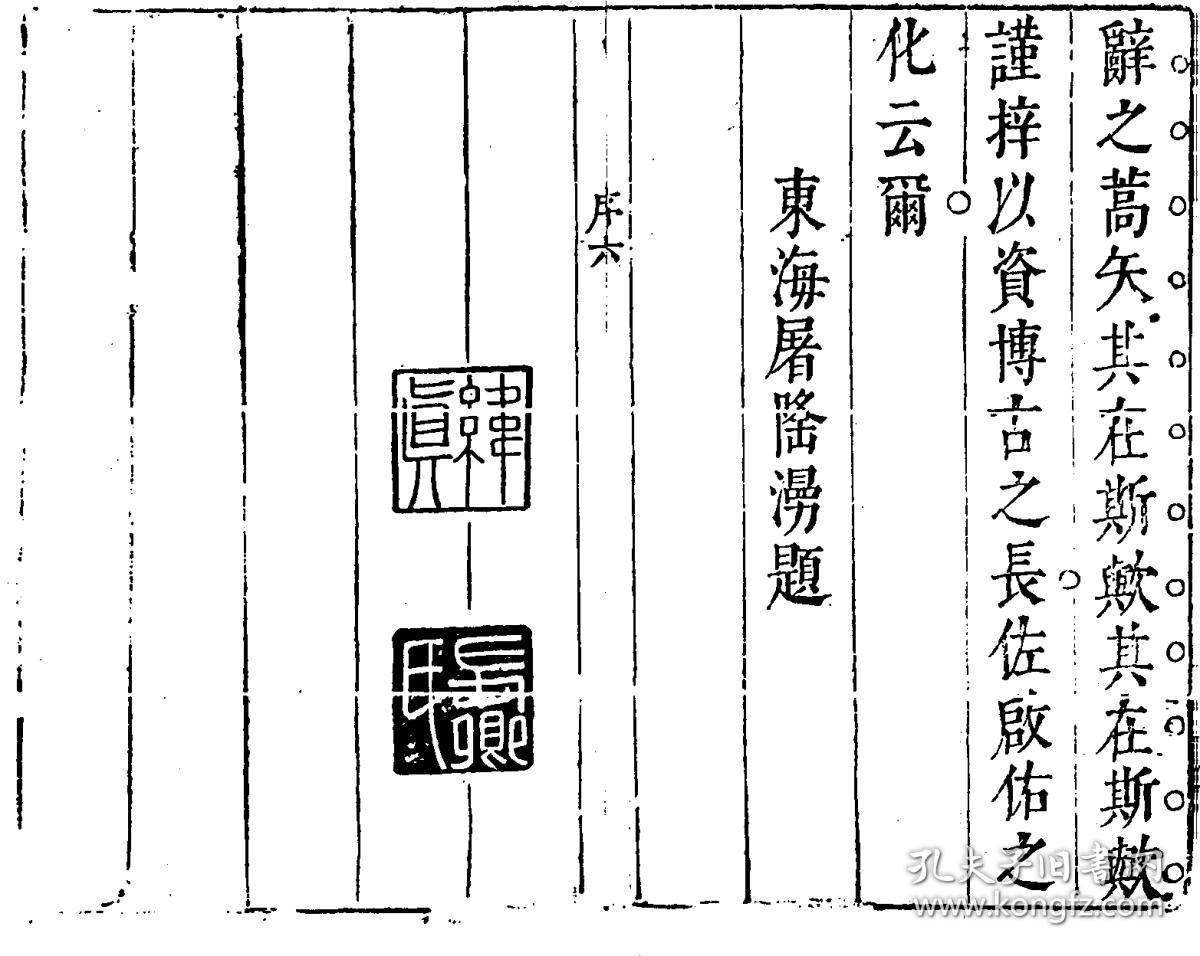 辭之蒿矢其在斯歟其在斯歟
謹梓以資博古之長佐啟佑之
化云爾
東海屠隆漫題
序六
緯真
孔夫子旧书网
www.kongfz.com